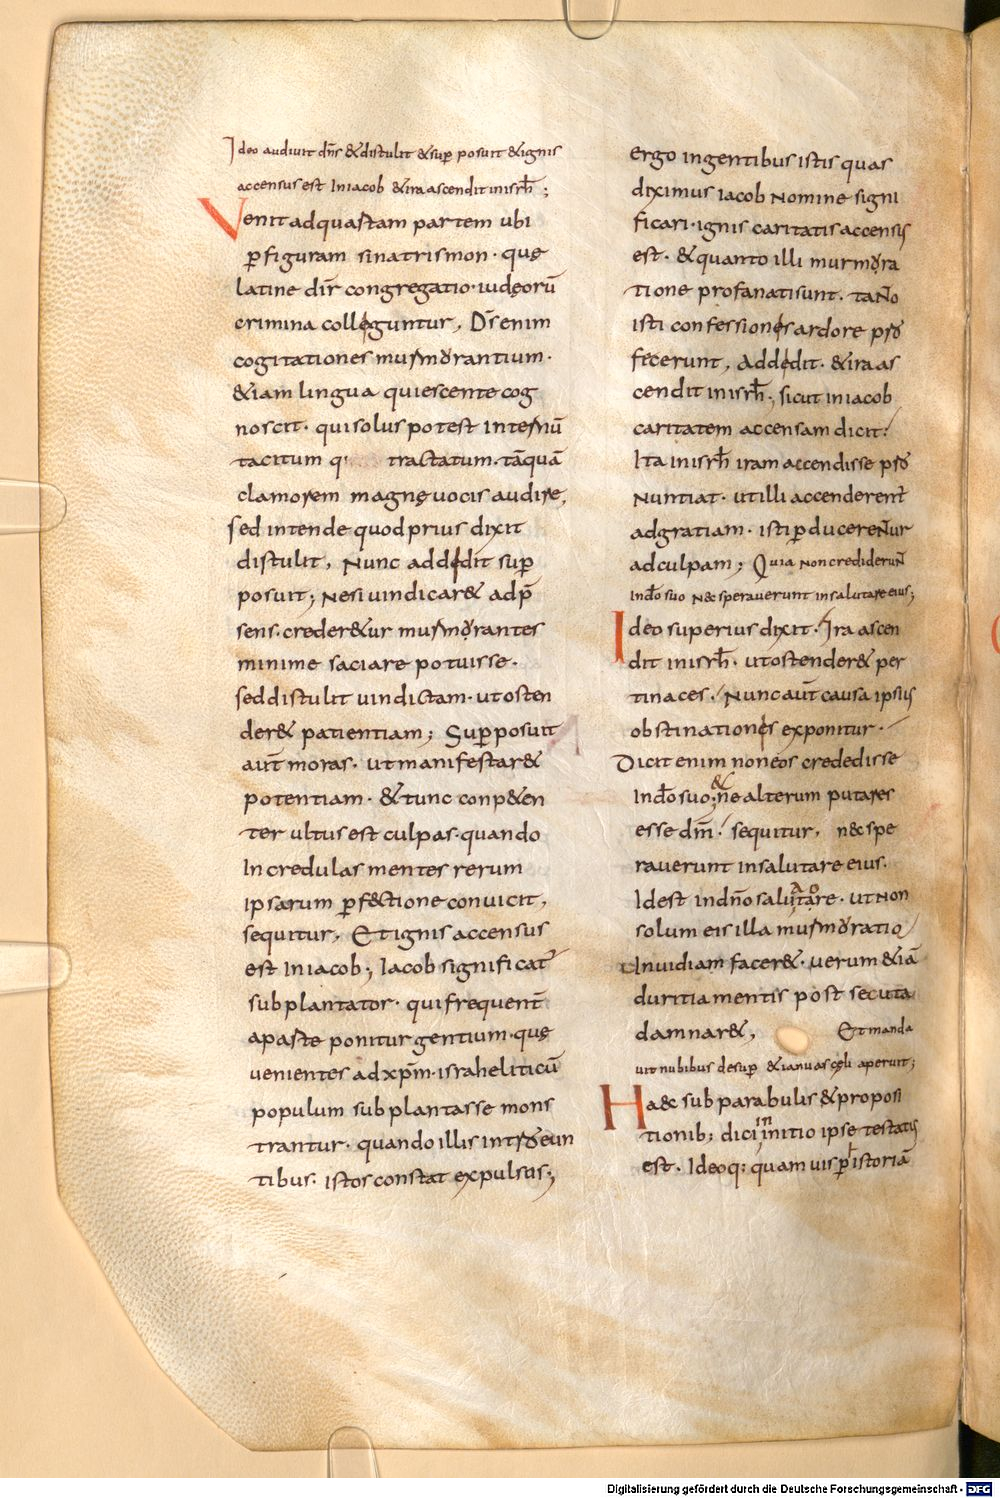 Ideo audiuit dn̄s &distulit &sup̄ posuit &ignis
accensus est Iniacob &ira ascendit inisrh̄;
Venit ad quastam partem ubi
p̄ figuram sinatrismon· quę
latine dir̄ congregatio· iudęorū
crimina colleguntur, Dr̄s enim
cogitationes murmorantium·
&iam lingua quiescente cog
noscit· qui solus potest internū
tacitum q· tractatum· tāquā
clamorem magnę uocis audire,
sed intende quod prius dixit
distulit, Nunc addedit sup̄
posuit; Nesi uindicar& adp̄
sens· creder&ur murmorantes
minime saciare potuisse·
sed distulit uindictam· ut osten
der& patientiam; Sup̄posuit
aut̄ moras· ut manifestar&
potentiam· &tunc conp&en
ter ultus est culpas· quando
Incredulas mentes rerum
ipsarum p̄f&ctione conuicit,
sequitur, Et ignis accensus
est In iacob; Iacob significat̄
subplantator· qui frequent̄
apaste ponitur gentium· quę
uenientes ad xp̄m· israheliticū
populum subplantasse mons
trantur· quando illis introeun
tibus· istos constat expulsus;
ergo in gentibus istis quas
diximus Iacob Nomine signi
ficari· ignis caritatis accensis
est· &quanto illi murmora
tione profanati sunt· tan̄o
isti confessiones ardore pro
fecerunt, Addedit· &ira as
cendit in isrh̄; sicut in iacob
caritatem accensam dicit·
Ita in isrh̄ iram accendisse pro
Nuntiat· ut illi accenderent̄
ad gratiam· isti p̄ducerentur
ad culpam; Quia Non crediderun̄
In do suo N&speraverunt in salutare eius;
Ideo superius dixit· Ira ascen
dit in isrh̄· ut ostender& per
tinaces· Nunc aut̄ causa ipsius
obstinationes exponitur·
Dicit enim non eos credidisse
In do suo; &
ne alterum putares
esse dm̄· sequitur, n&spe
raverunt in salutare eius·
Id est in dn̄o salutare· ut Non
solum eis illa murmoratio
Inuidiam facer&· uerum &iā
duritia mentis post secuta
damnar&, Et manda
uit nubibus desup̄ &ianuas cęli aperuit;
Haec sub parabulis &proposi
tionib; dici initio ipse testatus
est· Ideoq; quam uis p̄ istoriā
Digitalisierung gefördert durch die Deutsche Forschungsgemeinschaft - DFG